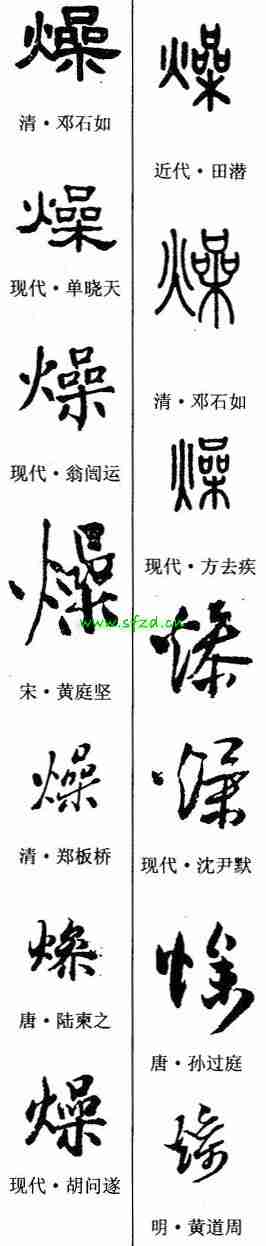 燥
清·邓石如
燥
现代·单晓天
燥
现代·翁闿运
燥
宋·黄庭坚
燥
清·郑板桥
燥
唐·陆柬之
燥
现代·胡问遂
燥
近代·田潜
燥
清·邓石如
燥
现代·方去疾
燥
燥
现代·沈尹默
燥
唐·孙过庭
燥
明·黄道周
www.sfzd.cn